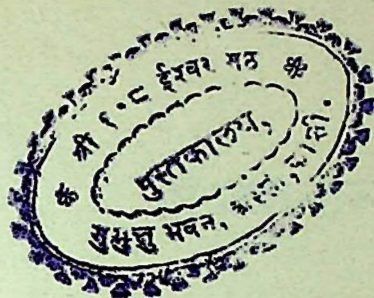 ❊ श्री १०८ ईश्वर मठ ❊
पुस्तकालय,
मुमुक्षु भवन, अस्सी, काशी.